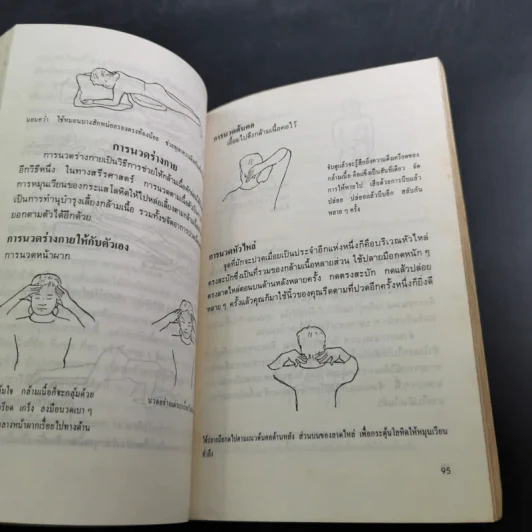 นอนคว่ำ ใช้หมอนบางสักหน่อยรองตรงท้องน้อย
การนวดร่างกาย
การนวดร่างกายเป็นวิธีการช่วยให้กล้ามเนื้อ
อีกวิธีหนึ่ง ในทางสรีรศาสตร์ การนวดตามเส้น
การหมุนเวียนของกระแสโลหิตให้ไปหล่อเลี้ยง
เป็นการทำนุบำรุงเลี้ยงกล้ามเนื้อ รวมทั้งขจัดอาการ
ยอกตามตัวได้อีกด้วย
การนวดร่างกายให้กับตัวเอง
การนวดหน้าผาก
กล้ามเนื้อก็จะกลุ้มด้วย
เกร็ง ลงมือนวดเบา ๆ
กลางหน้าผากเรื่อยไปทางด้าน
การนวดต้นคอ
เอื้อมไปดึงกล้ามเนื้อคอไว้
จับดูแล้วจะรู้สึกถึงความตึงเครียดของ
กล้ามเนื้อ คอแข็งเป็นสันทีเดียว จัด
การให้หายไป เสียด้วยการบีบแล้ว
ปล่อย ปล่อยแล้วบีบอีก สลับกัน
หลาย ๆ ครั้ง
การนวดหัวไหล่
จุดที่มักจะปวดเมื่อยเป็นประจำอีกแห่งหนึ่งก็คือบริเวณหัวไหล่
ตรงสะบักซึ่งเป็นที่รวมของกล้ามเนื้อหลายส่วน ใช้ปลายมือกดหนัก ๆ
ตรงลาดไหล่ตอนบนด้านหลังหลายครั้ง กดตรงสะบัก กดแล้วปล่อย
หลาย ๆ ครั้งแล้วคุณก็มาใช้นิ้วของคุณรีดตามที่ปวดอีกครั้งหนึ่งก็ยิ่งดี
ใช้ปลายมือกดไปตามแนวต้นคอด้านหลัง ส่วนบนของลาดไหล่ เพื่อกระตุ้นโลหิตให้หมุนเวียน
ทั่วถึง
95